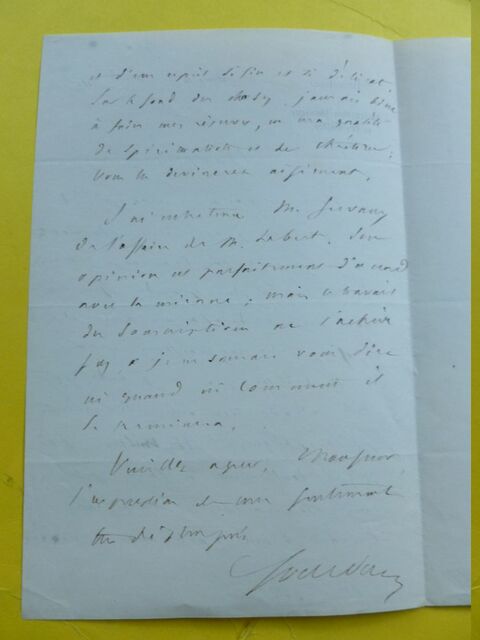 et d'un esprit si fin et si délicat.
Sur le fond des choses, j'aurais bien
à faire mes réserves, en ma qualité
de Spiritualiste et de chrétien;
vous le devinerez aisément.
J'ai entretenu M.
de l'affaire de M. Son
opinion est parfaitement d'accord
avec la mienne; mais le travail
du ne s'achève
pas, & je ne saurais vous dire
ni quand ni comment il
se terminera.
Veuillez agréer, Monsieur,
l'expression de mes sentiments
très distingués